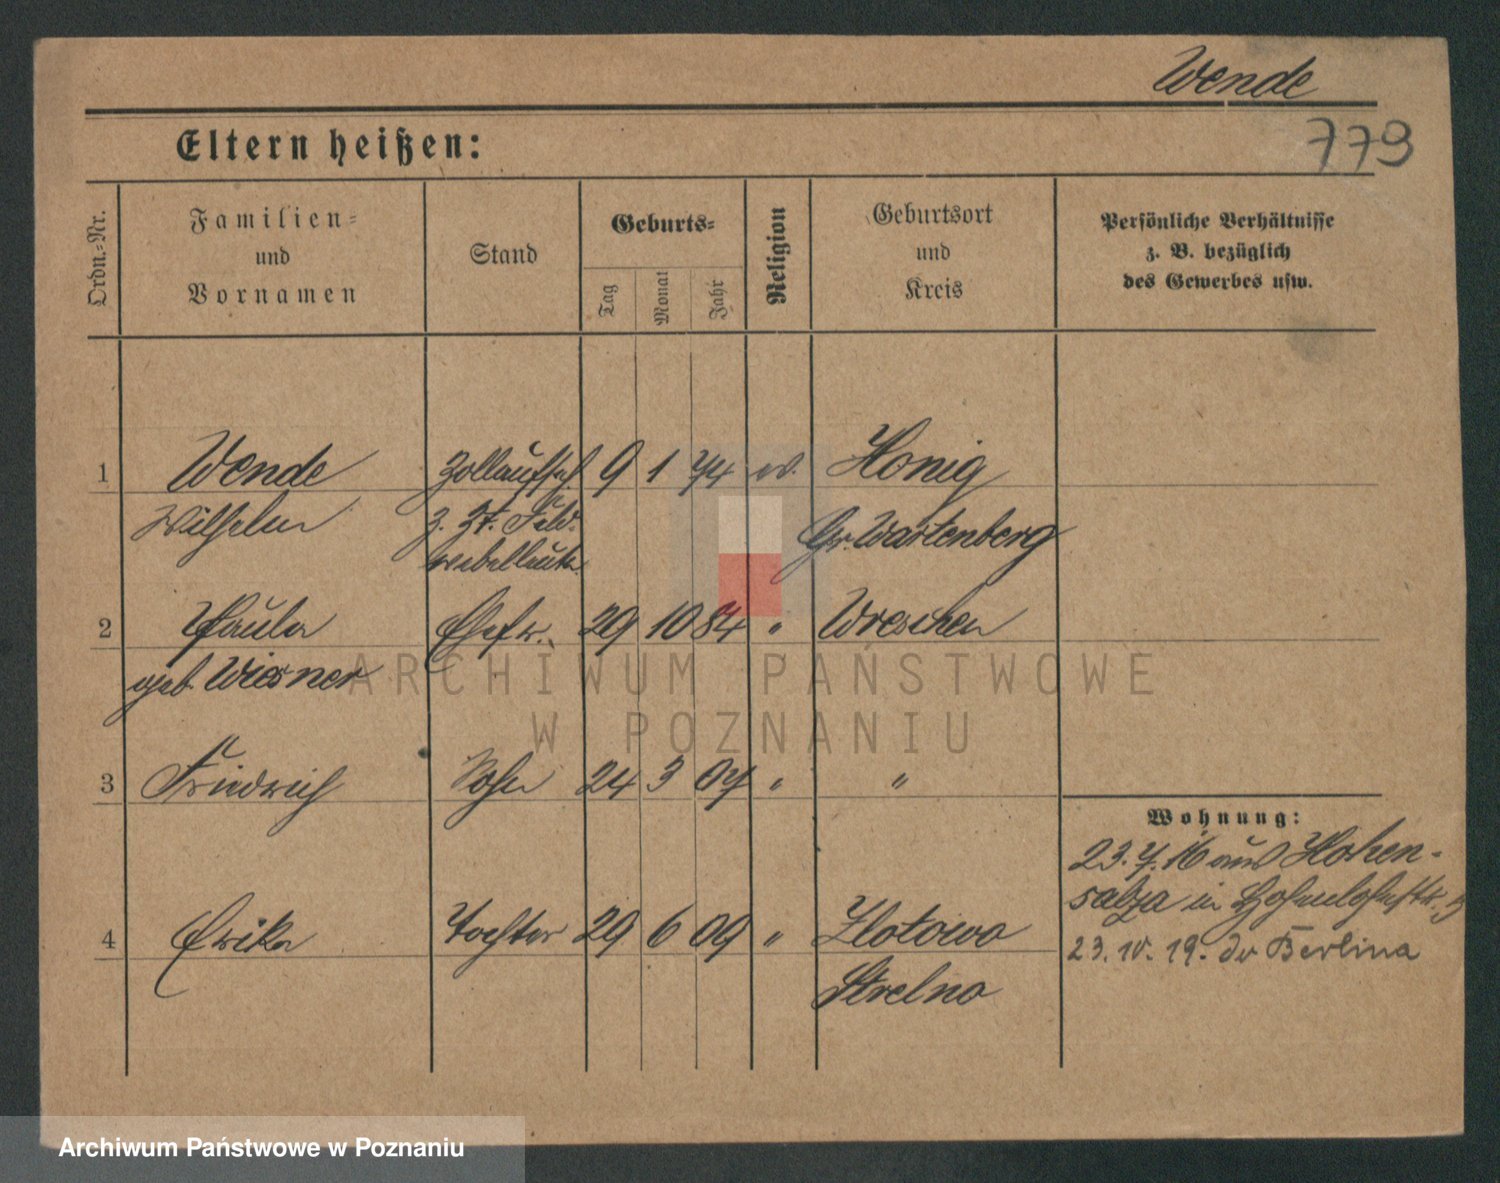 Wende
779
Eltern heißen:
Ordn.-Nr.
Familien-
und
Vornamen
Stand
Geburts-
Tag
Monat
Jahr
Religion
Geburtsort
und
Kreis
Persönliche Verhältnisse
z. B. bezüglich
des Gewerbes usw.
1 Wende Zollaufseh. 9 1 74 ev. Honig
Wilhelm z. Zt. Feld-
webelleutn. Gr. Wartenberg
2 Paula Ehefr. 29 10 84 " Wreschen
geb. Wiesner
3 Friedrich Sohn 24 3 07 " "
Wohnung:
23.7.16 aus Hohen-
salza in Hohenlohestr.
4 Erika Tochter 29 6 09 " Zlotowo
23.10.19. do Berlina
Strelno
ARCHIWUM PAŃSTWOWE
W POZNANIU
Archiwum Państwowe w Poznaniu